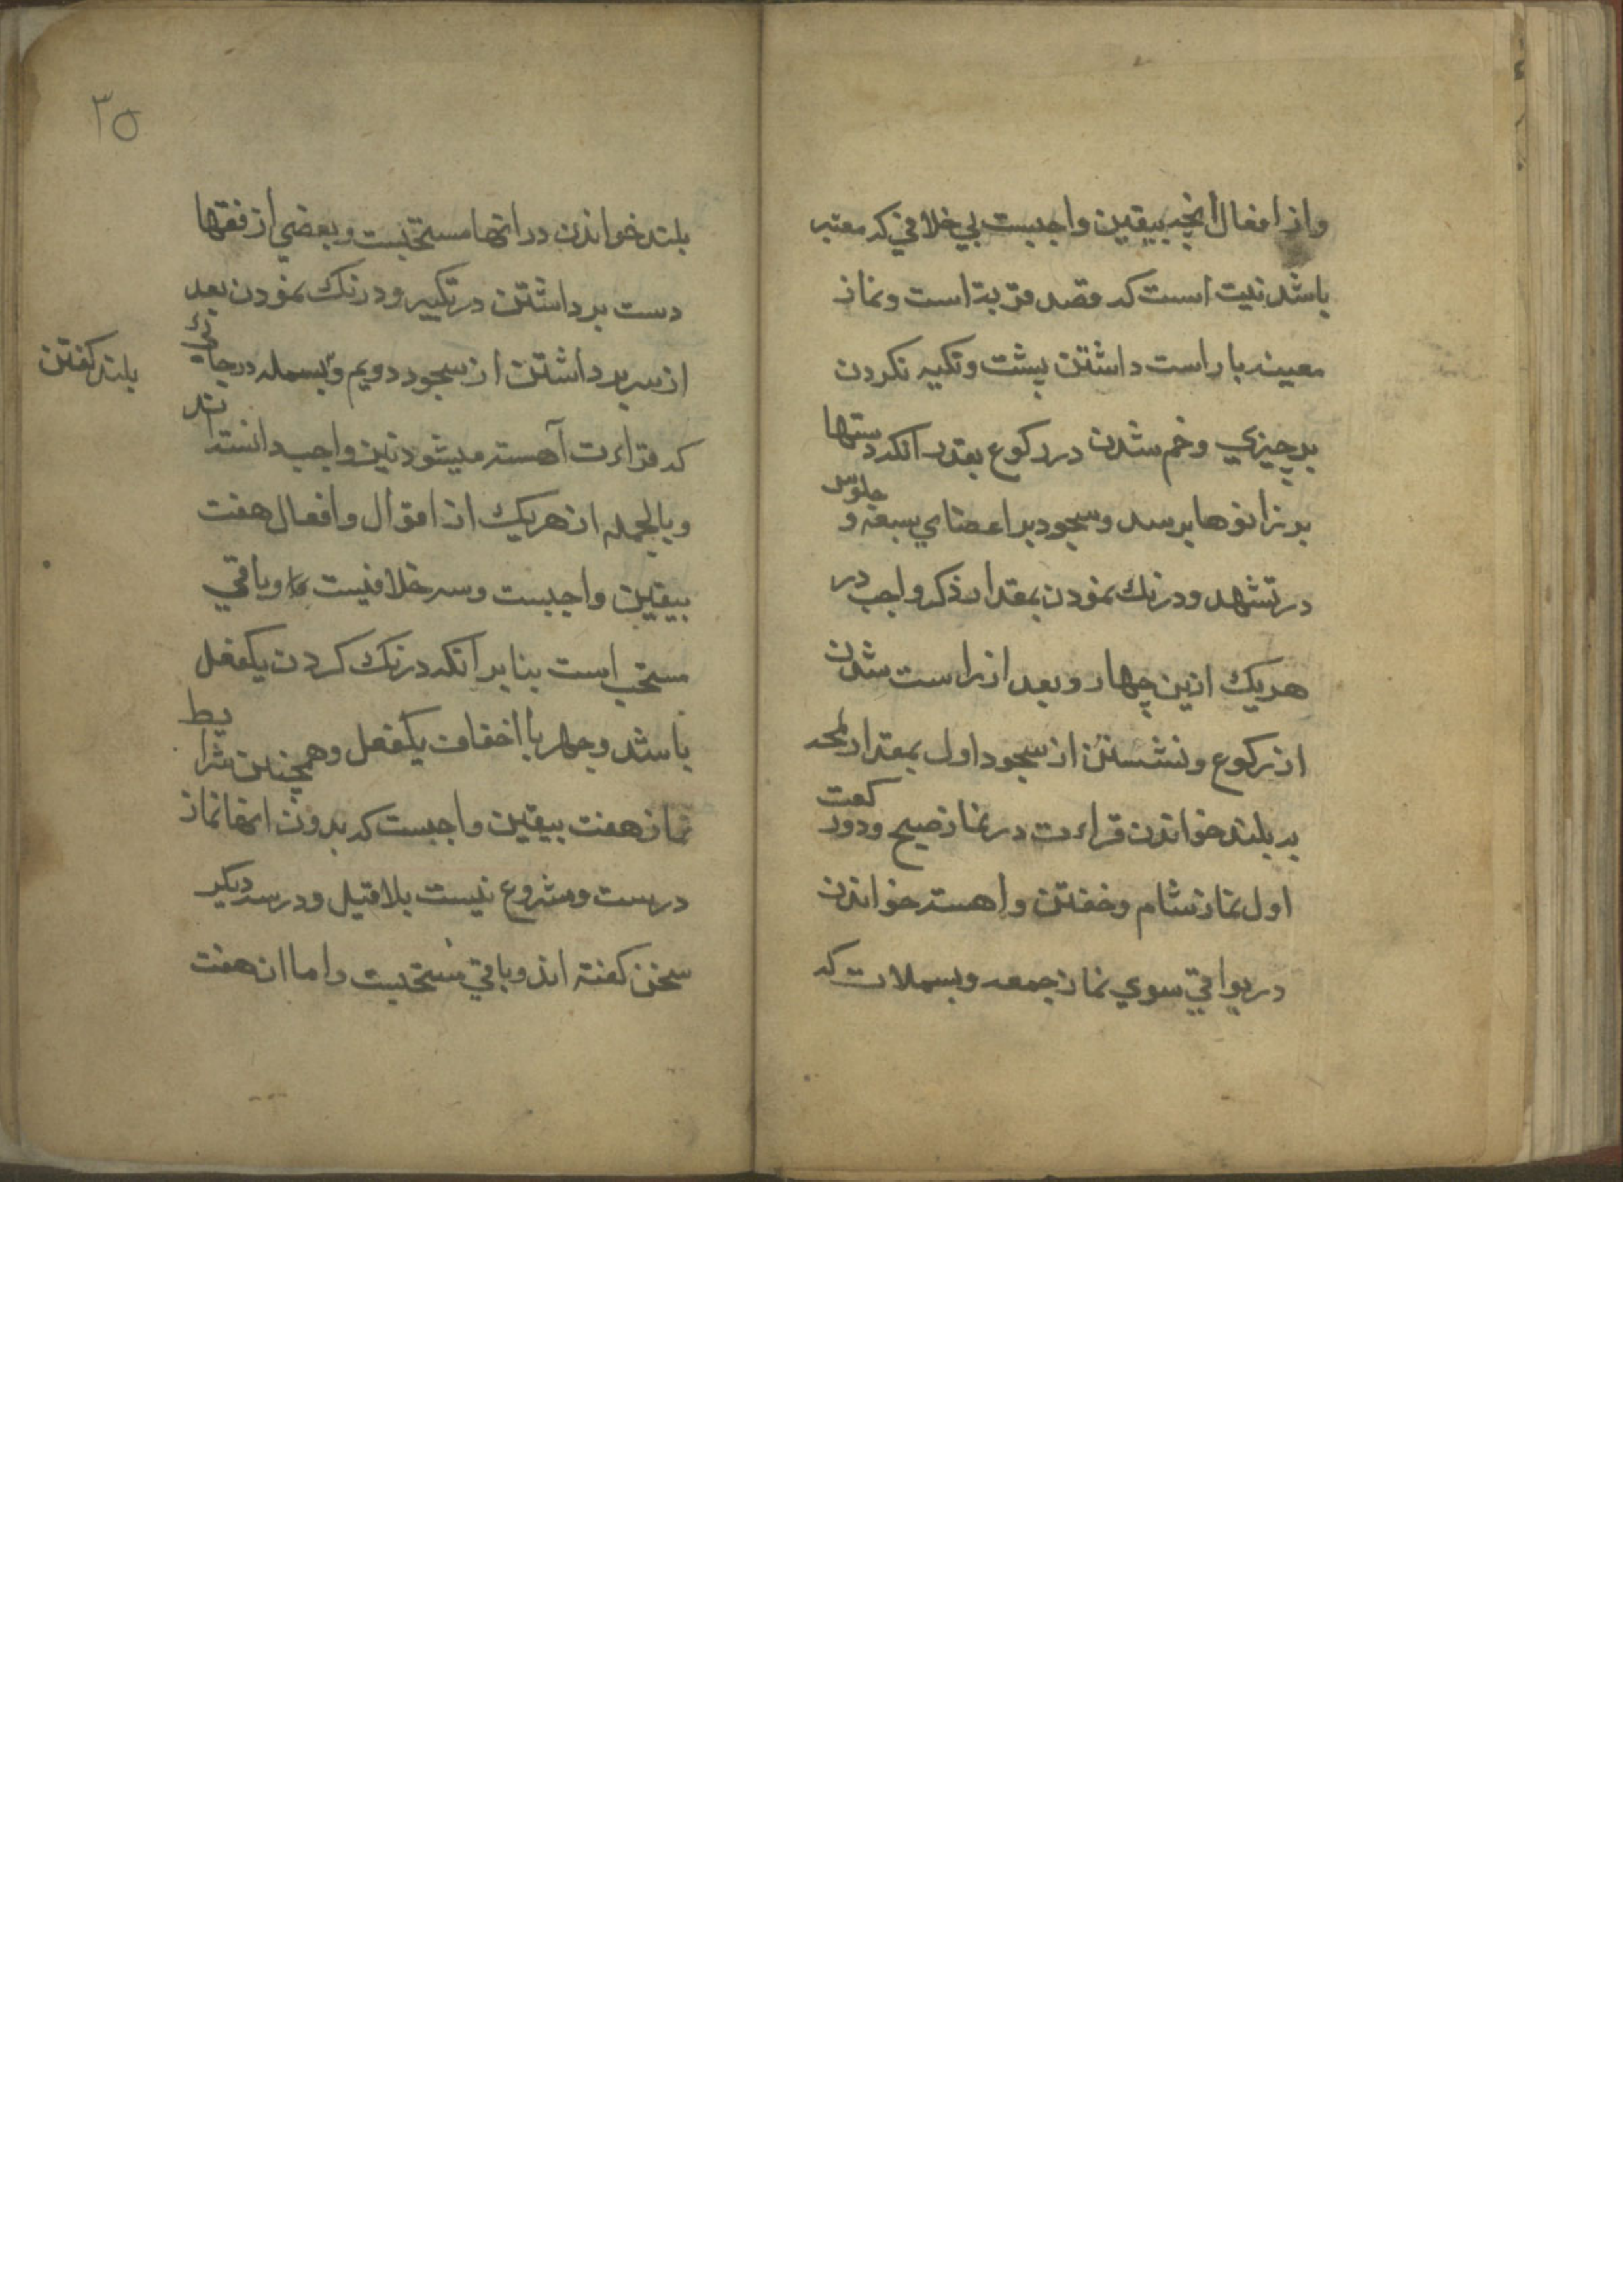 واز افعال انچه بیقین واجبست بی خلافی که معتبر
باشد نیت است که قصد قربة است ونماز
معینه با راست داشتن پشت وتکیه نکردن
بر چیزی وخم شدن در رکوع بقدر انکه دستها
بر زانوها برسد وسجود بر اعضای سبعه و جلوس
در تشهد ودرنك نمودن بمقدار ذکر واجب در
هریك ازین چهار وبعد از راست شدن
از رکوع ونشستن از سجود اول بمقدار لمحه
بر بلند خواندن قراءت در نماز صبح ودو رکعت
اول نماز شام وخفتن واهسته خواندن
در بواقی سوی نماز جمعه وبسملات که
۳۵
بلند خواندن در انها مستحبست وبعضی از فقها
دست برداشتن در تکبیر ودرنك نمودن بعد
از سر برداشتن از سجود دویم وبسمله در جائی
بلند کفتن
که قراءت آهسته میشود نیز واجب دانسته اند
وبالجمله از هریك از اقوال وافعال هفت
بیقین واجبست وسه خلافیست وباقی
مستحب است بنا بر انکه درنك کردن یکفعل
باشد وجهر با اخفات یکفعل وهمچنین شرایط
نماز هفت بیقین واجبست که بدون انها نماز
درست ومشروع نیست بلا قیل ودر سه دیکر
سخن کفته اند وباقی مستحبست واما ان هفت